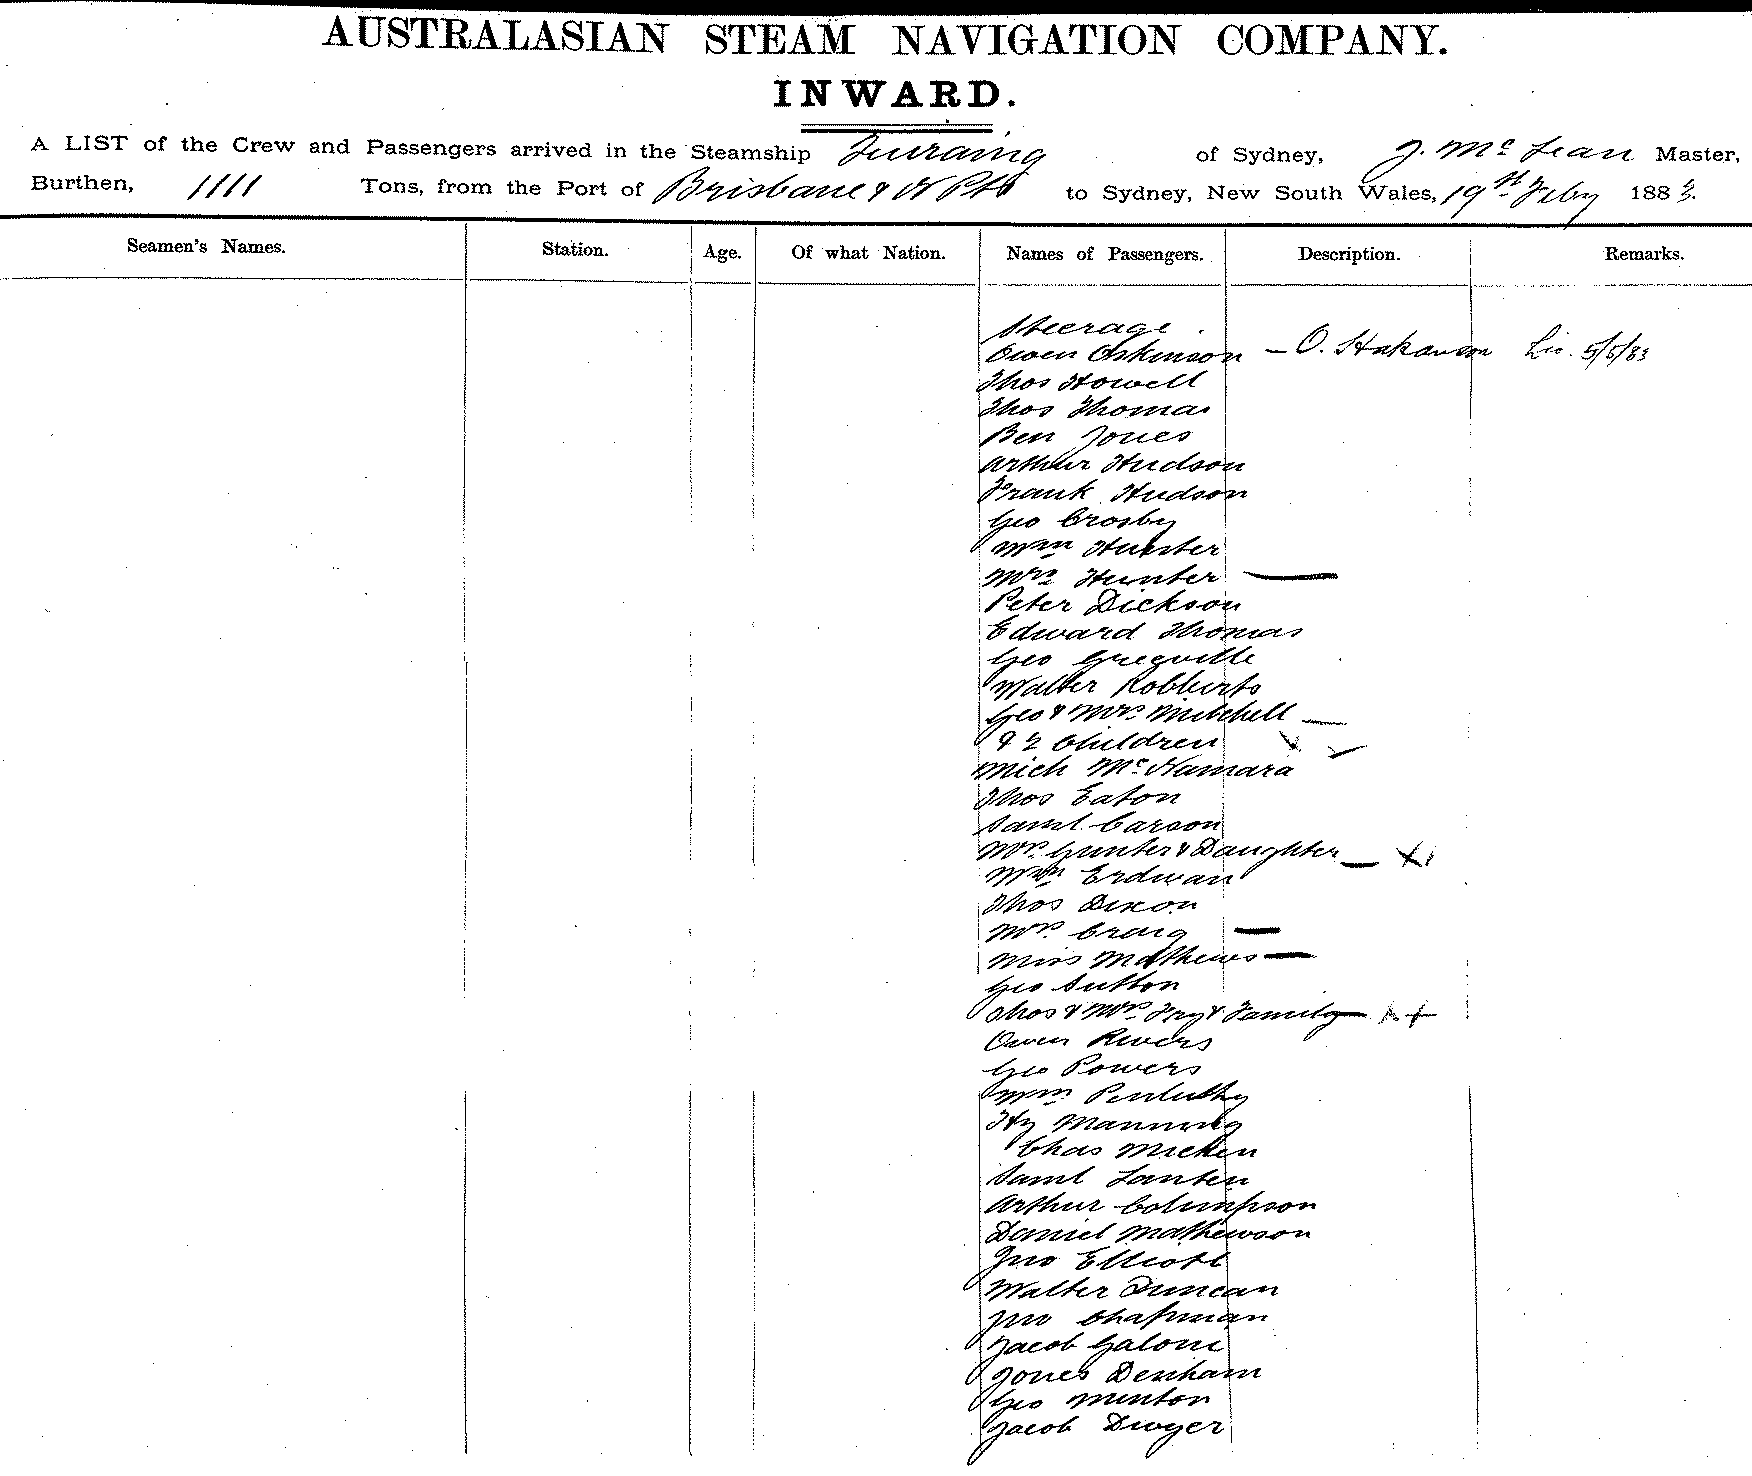 AUSTRALASIAN STEAM NAVIGATION COMPANY.
INWARD.
A LIST of the Crew and Passengers arrived in the Steamship Quiraing of Sydney, J. McLean Master,
Burthen, 1111 Tons, from the Port of Brisbane & N Pts to Sydney, New South Wales, 19st Feby 1883.
Seamen's Names. Station. Age. Of what Nation. Names of Passengers. Description. Remarks.
Steerage.
Owen Oskinson – O. Hakanson Lic. 5/5/83
Thos Howell
Thos Thomas
Ben Jones
Arthur Hudson
Frank Hudson
Geo Crosby
Wm Hunter
Mrs Hunter —
Peter Dickson
Edward Thomas
Geo Gregville
Walter Robberts
Geo & Mrs Mitchell —
& 2 Children
Mich McNamara
Thos Eaton
Saml. Carson
Mrs Gunter & Daughter —
Wm Erdwan
Thos Dixon
Mrs Craig —
Miss Mathews —
Geo Sutton
Thos & Mrs Fry & Family —
Owen Rivers
Geo Powers
Wm
Hy Manning
Chas Micken
Saml Lanten
Arthur Colimpson
Daniel Mathewson
Jno Elliott
Walter Duncan
Jno Chapman
Jacob Galoni
Jones Denham
Geo Minton
Jacob Dwyer